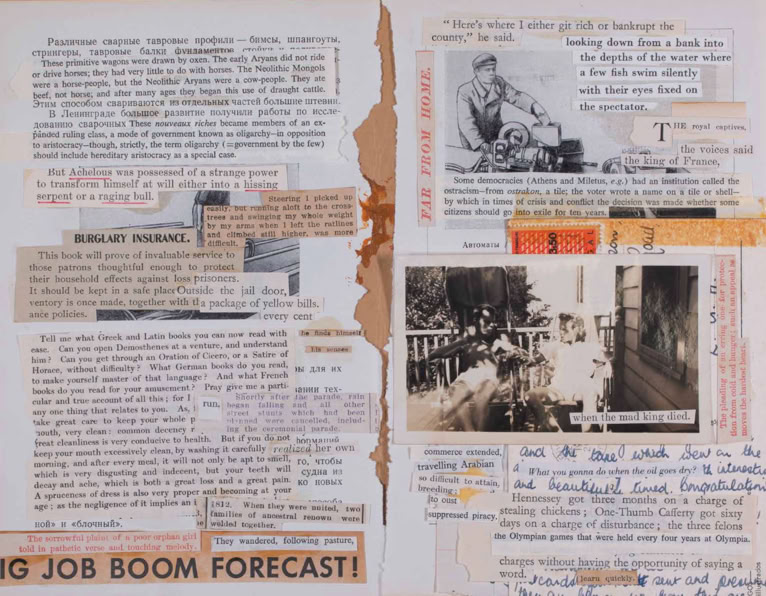 Различные сварные тавровые профили — бимсы, шпангоуты,
стрингеры, тавровые балки фундаментов
These primitive wagons were drawn by oxen. The early Aryans did not ride
or drive horses; they had very little to do with horses. The Neolithic Mongols
were a horse-people, but the Neolithic Aryans were a cow-people. They ate
beef, not horse; and after many ages they began this use of draught cattle.
Этим способом свариваются из отдельных частей большие штевни.
В Ленинграде большое развитие получили работы по иссле-
дованию сварочных These nouveaux riches became members of an ex-
panded ruling class, a mode of government known as oligarchy—in opposition
to aristocracy—though, strictly, the term oligarchy (=government by the few)
should include hereditary aristocracy as a special case.
But Achelous was possessed of a strange power
to transform himself at will either into a hissing
serpent or a raging bull.
Steering I picked up
easily, but running aloft to the cross-
trees and swinging my whole weight
by my arms when I left the ratlines
and climbed still higher, was more
difficult.
BURGLARY INSURANCE.
This book will prove of invaluable service to
those patrons thoughtful enough to protect
their household effects against loss prisoners.
It should be kept in a safe place Outside the jail door,
ventory is once made, together with a package of yellow bills.
ance policies. every cent
Tell me what Greek and Latin books you can now read with
ease. Can you open Demosthenes at a venture, and understand
him? Can you get through an Oration of Cicero, or a Satire of
Horace, without difficulty? What German books do you read,
to make yourself master of that language? And what French
books do you read for your amusement? Pray give me a parti-
cular and true account of all this; for I
any one thing that relates to you. As,
take great care to keep your whole p
mouth, very clean: common decency r
great cleanliness is very conducive to health. But if you do not
keep your mouth excessively clean, by washing it carefully realized her own
morning, and after every meal, it will not only be apt to smell,
which is very disgusting and indecent, but your teeth will
decay and ache, which is both a great loss and a great pain.
A spruceness of dress is also very proper and becoming at your
age; as the negligence of it implies an i
he finds himself
His senses
ы для их
ании тех-
run.
Shortly after the parade, rain
began falling and all other
street stunts which had been
planned were cancelled, includ-
ing the ceremonial parade.
го, чтобы
судна из
ко новых
ной» и «блочный».
1812. When they were united, two
families of ancestral renown were
welded together.
The sorrowful plaint of a poor orphan girl
told in pathetic verse and touching melody.
They wandered, following pasture,
G JOB BOOM FORECAST!
"Here's where I either git rich or bankrupt the
county," he said.
looking down from a bank into
the depths of the water where
a few fish swim silently
with their eyes fixed on
the spectator.
FAR FROM HOME.
THE royal captives,
the voices said
the king of France,
Some democracies (Athens and Miletus, e.g.) had an institution called the
ostracism—from ostrakon, a tile; the voter wrote a name on a tile or shell—
by which in times of crisis and conflict the decision was made whether some
citizens should go into exile for ten years.
Автоматы
3.50
Road
The pleading of an erring one for protec-
tion from cold and hunger; such an appeal as
moves the hardest heart.
when the mad king died.
commerce extended,
travelling Arabian
so difficult to attain,
breeding;
to oust
suppressed piracy,
and the tape which went on the
a What you gonna do when the oil goes dry? th interestin
and beautifully timed. Congratulation
Hennessey got three months on a charge of
stealing chickens; One-Thumb Cafferty got sixty
days on a charge of disturbance; the three felons
the Olympian games that were held every four years at Olympia.
charges without having the opportunity of saying a
word.
learn quickly.
sent and